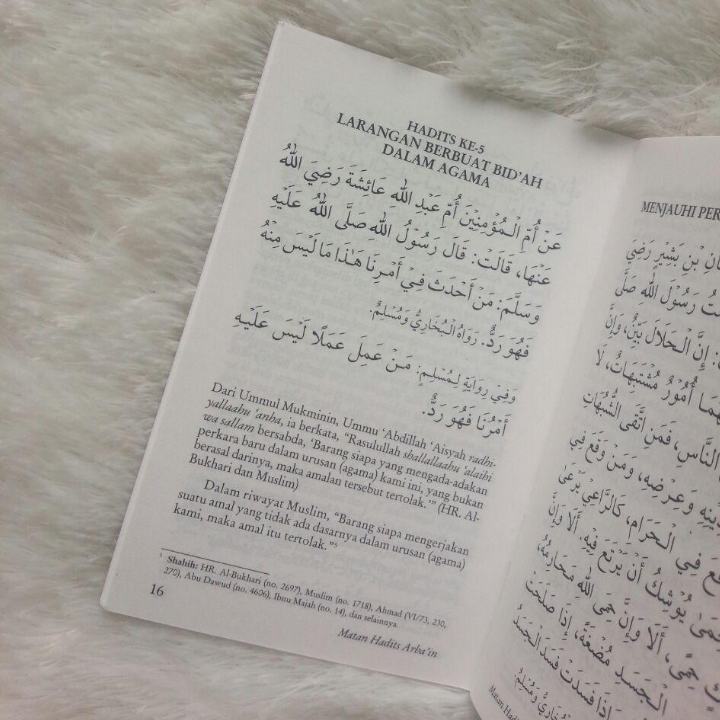 HADITS KE-5
LARANGAN BERBUAT BID'AH
DALAM AGAMA
عَنْ أُمِّ الْمُؤْمِنِيْنَ أُمِّ عَبْدِ اللهِ عَائِشَةَ رَضِيَ اللهُ
عَنْهَا، قَالَتْ: قَالَ رَسُوْلُ اللهِ صَلَّى اللهُ عَلَيْهِ
وَسَلَّمَ: مَنْ أَحْدَثَ فِيْ أَمْرِنَا هَـٰذَا مَا لَيْسَ مِنْهُ
فَهُوَ رَدٌّ. رَوَاهُ الْبُخَارِيُّ وَمُسْلِمٌ.
وَفِيْ رِوَايَةٍ لِمُسْلِمٍ: مَنْ عَمِلَ عَمَلًا لَيْسَ عَلَيْهِ
أَمْرُنَا فَهُوَ رَدٌّ.
Dari Ummul Mukminin, Ummu 'Abdillah 'Aisyah radhi-
yallaahu 'anha, ia berkata, "Rasulullah shallallaahu 'alaihi
wa sallam bersabda, 'Barang siapa yang mengada-adakan
perkara baru dalam urusan (agama) kami ini, yang bukan
berasal darinya, maka amalan tersebut tertolak.'" (HR. Al-
Bukhari dan Muslim)
Dalam riwayat Muslim, "Barang siapa mengerjakan
suatu amal yang tidak ada dasarnya dalam urusan (agama)
kami, maka amal itu tertolak."⁵
Shahih: HR. Al-Bukhari (no. 2697), Muslim (no. 1718), Ahmad (VI/73, 230,
270), Abu Dawud (no. 4606), Ibnu Majah (no. 14), dan selainnya.
16
Matan Hadits Arba'in
MENJAUHI
بْنِ بَشِيْرٍ رَضِيَ
رَسُوْلَ اللهِ صَلَّى
إِنَّ الْحَلَالَ بَيِّنٌ، وَإِنَّ
أُمُوْرٌ مُشْتَبِهَاتٌ، لَا
النَّاسِ، فَمَنِ اتَّقَى الشُّبُهَاتِ
وَعِرْضِهِ، وَمَنْ وَقَعَ فِي
فِي الْحَرَامِ، كَالرَّاعِيْ يَرْعَى
يُوْشِكُ أَنْ يَرْتَعَ فِيْهِ، أَلَا وَإِنَّ
حِمًى، أَلَا وَإِنَّ حِمَى اللهِ مَحَارِمُهُ،
الْجَسَدِ مُضْغَةً، إِذَا صَلَحَتْ
وَإِذَا فَسَدَتْ فَسَدَ الْجَسَدُ
وَمُسْلِمٌ.
Matan